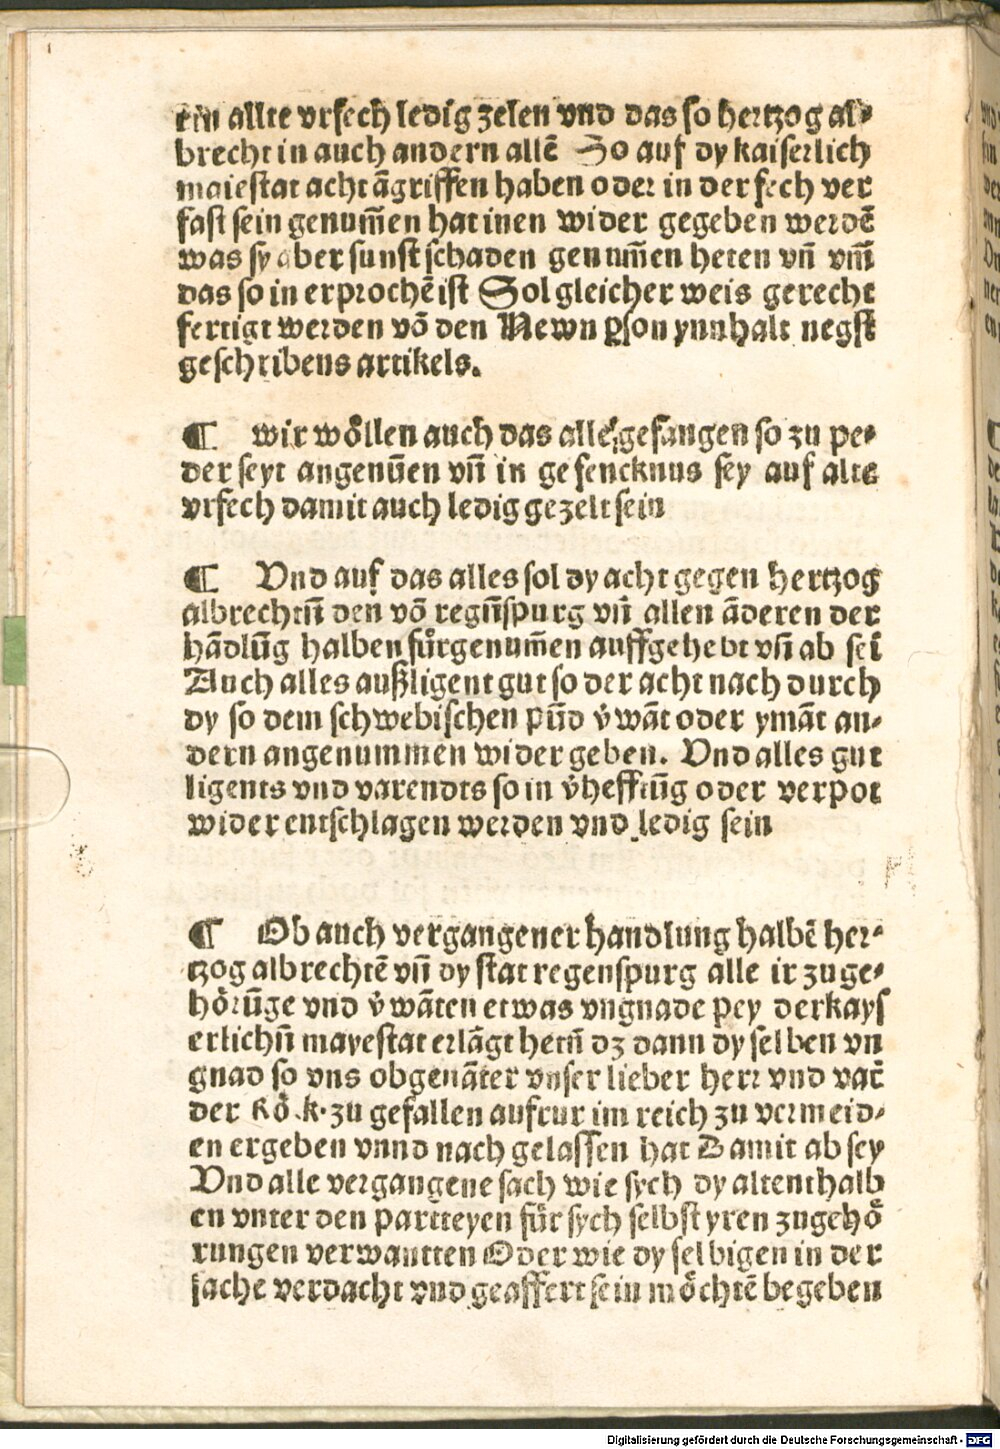 ein allte vrfech ledig zelen vnd das so hertzog al-
brecht in auch andern allē So auf dy kaiserlich
maiestat acht āgriffen haben oder in der fech ver
fast sein genum̄en hat inen wider gegeben werdē
was sy aber sunst schaden genum̄en heten vn̄ vm̄
das so in erprochē ist Sol gleicher weis gerecht
fertigt werden vō den Newn ꝑson ynnhalt negst
geschribens artikels.
¶ wir wöllen auch das alle gefangen so zu pe-
der seyt angenūen vn̄ in gefencknus sey auf alte
vrfech damit auch ledig gezelt sein
¶ Vnd auf das alles sol dy acht gegen hertzog
albrechtn̄ den vō regn̄spurg vn̄ allen āderen der
hādlūg halben fürgenum̄en auffgehebt vn̄ ab seī
Auch alles außligent gut so der acht nach durch
dy so dem schwebischen pūd v̄wāt oder ymāt an-
dern angenummen wider geben. Vnd alles gut
ligents vnd varendts so in v̄hefftūg oder verpot
wider entschlagen werden vnd ledig sein
¶ Ob auch vergangener handlung halbē her-
tzog albrechtē vn̄ dy stat regenspurg alle ir zuge-
hörūge vnd v̄wāten etwas vngnade pey der kays
erlichn̄ mayestat erlāgt hetn̄ dz dann dy selben vn
gnad so vns obgenāter vnser lieber herr vnd vat̄
der Rö.k. zu gefallen aufrur im reich zu vermeid-
en ergeben vnnd nach gelassen hat Damit ab sey
Vnd alle vergangene sach wie sych dy altenthalb
en vnter den partteyen für sych selbst yren zugehö
rungen verwantten Oder wie dy selbigen in der
sache verdacht vnd geaffert sein möchtē begeben
Digitalisierung gefördert durch die Deutsche Forschungsgemeinschaft - DFG